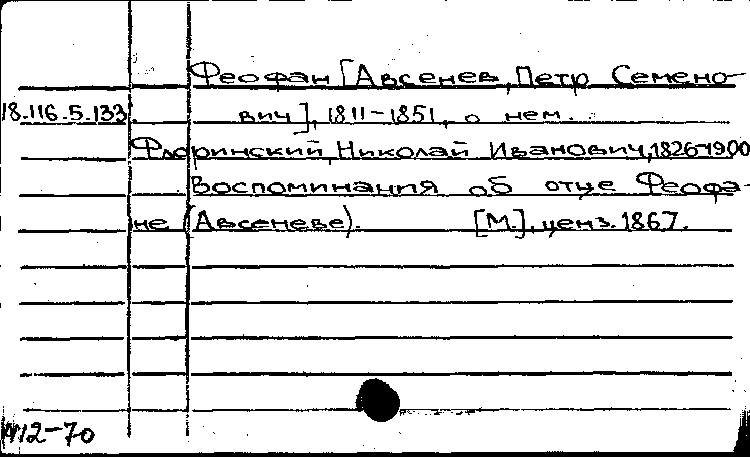 Феофан [Авсенев, Петр Семено-
18.116.5.133. вич], 1811-1851, о нем.
Флоринский, Николай Иванович, 1826-1900
Воспоминания об отце Феофа-
не (Авсеневе). [М.], ценз. 1867.
М12-70